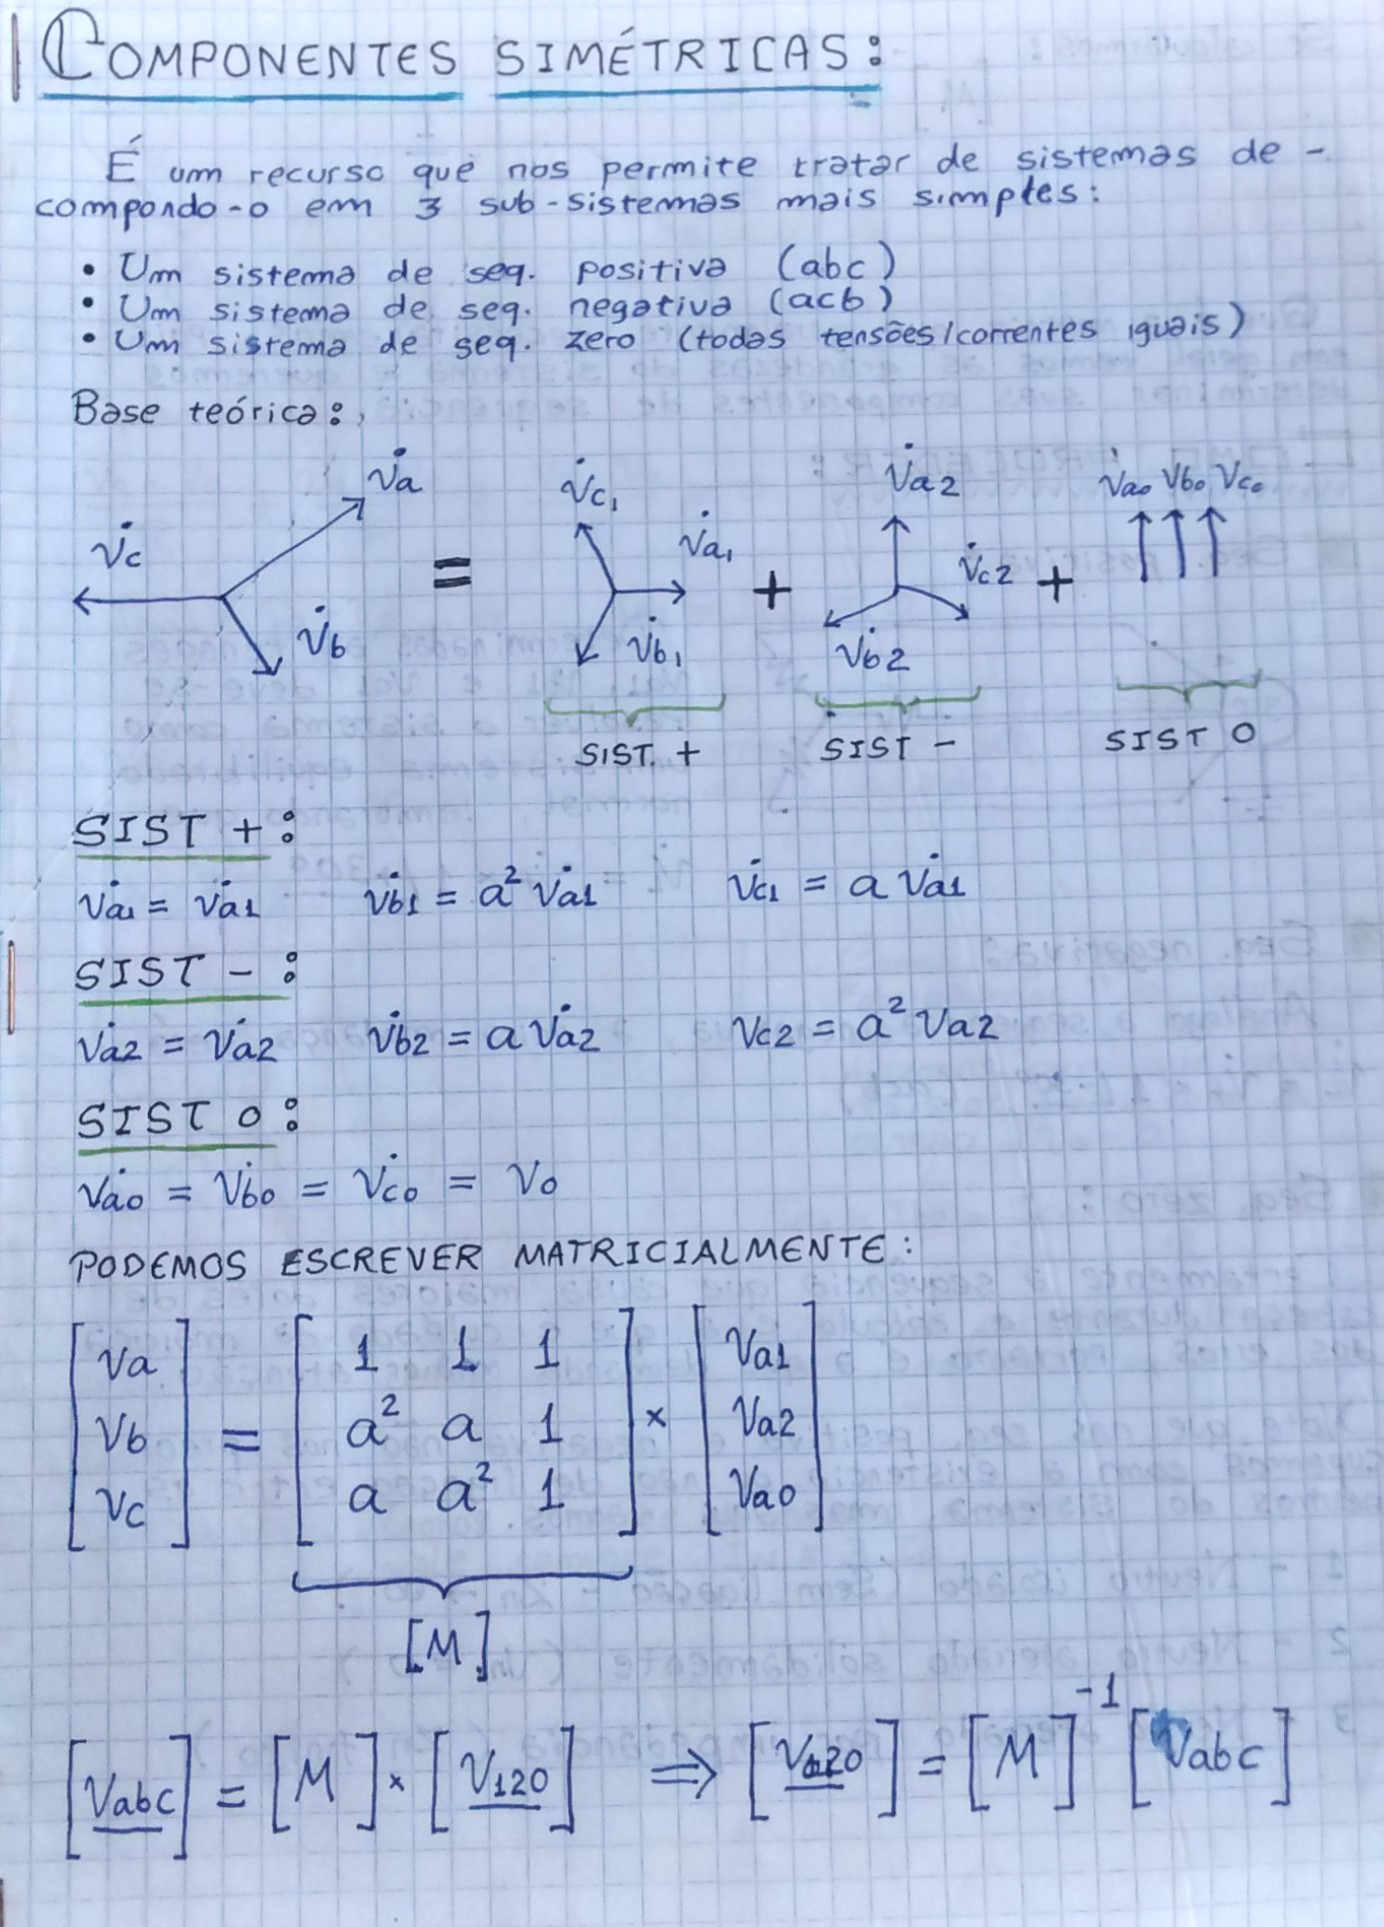 COMPONENTES SIMÉTRICAS:
É um recurso que nos permite tratar de sistemas de-
compondo-o em 3 sub-sistemas mais simples:
• Um sistema de seq. positiva (abc)
• Um sistema de seq. negativa (acb)
• Um sistema de seq. zero (todas tensões/correntes iguais)
Base teórica:
V̇c V̇a V̇b = V̇c₁ V̇a₁ V̇b₁ + V̇a2 V̇c2 V̇b2 + V̇a₀ Vb₀ Vc₀
SIST. + SIST - SIST 0
SIST +:
V̇a₁ = V̇a1 V̇b1 = a² V̇a1 V̇c1 = a V̇a1
SIST -:
V̇a2 = V̇a2 V̇b2 = a V̇a2 Vc2 = a² Va2
SIST 0:
V̇a0 = V̇b0 = V̇c0 = V0
PODEMOS ESCREVER MATRICIALMENTE:
[Va] = [1 1 1] × [Va1]
[Vb] [a² a 1] [Va2]
[Vc] [a a² 1] [Va0]
[M]
[Vabc] = [M] × [V120] ⇒ [V120] = [M]⁻¹ [Vabc]